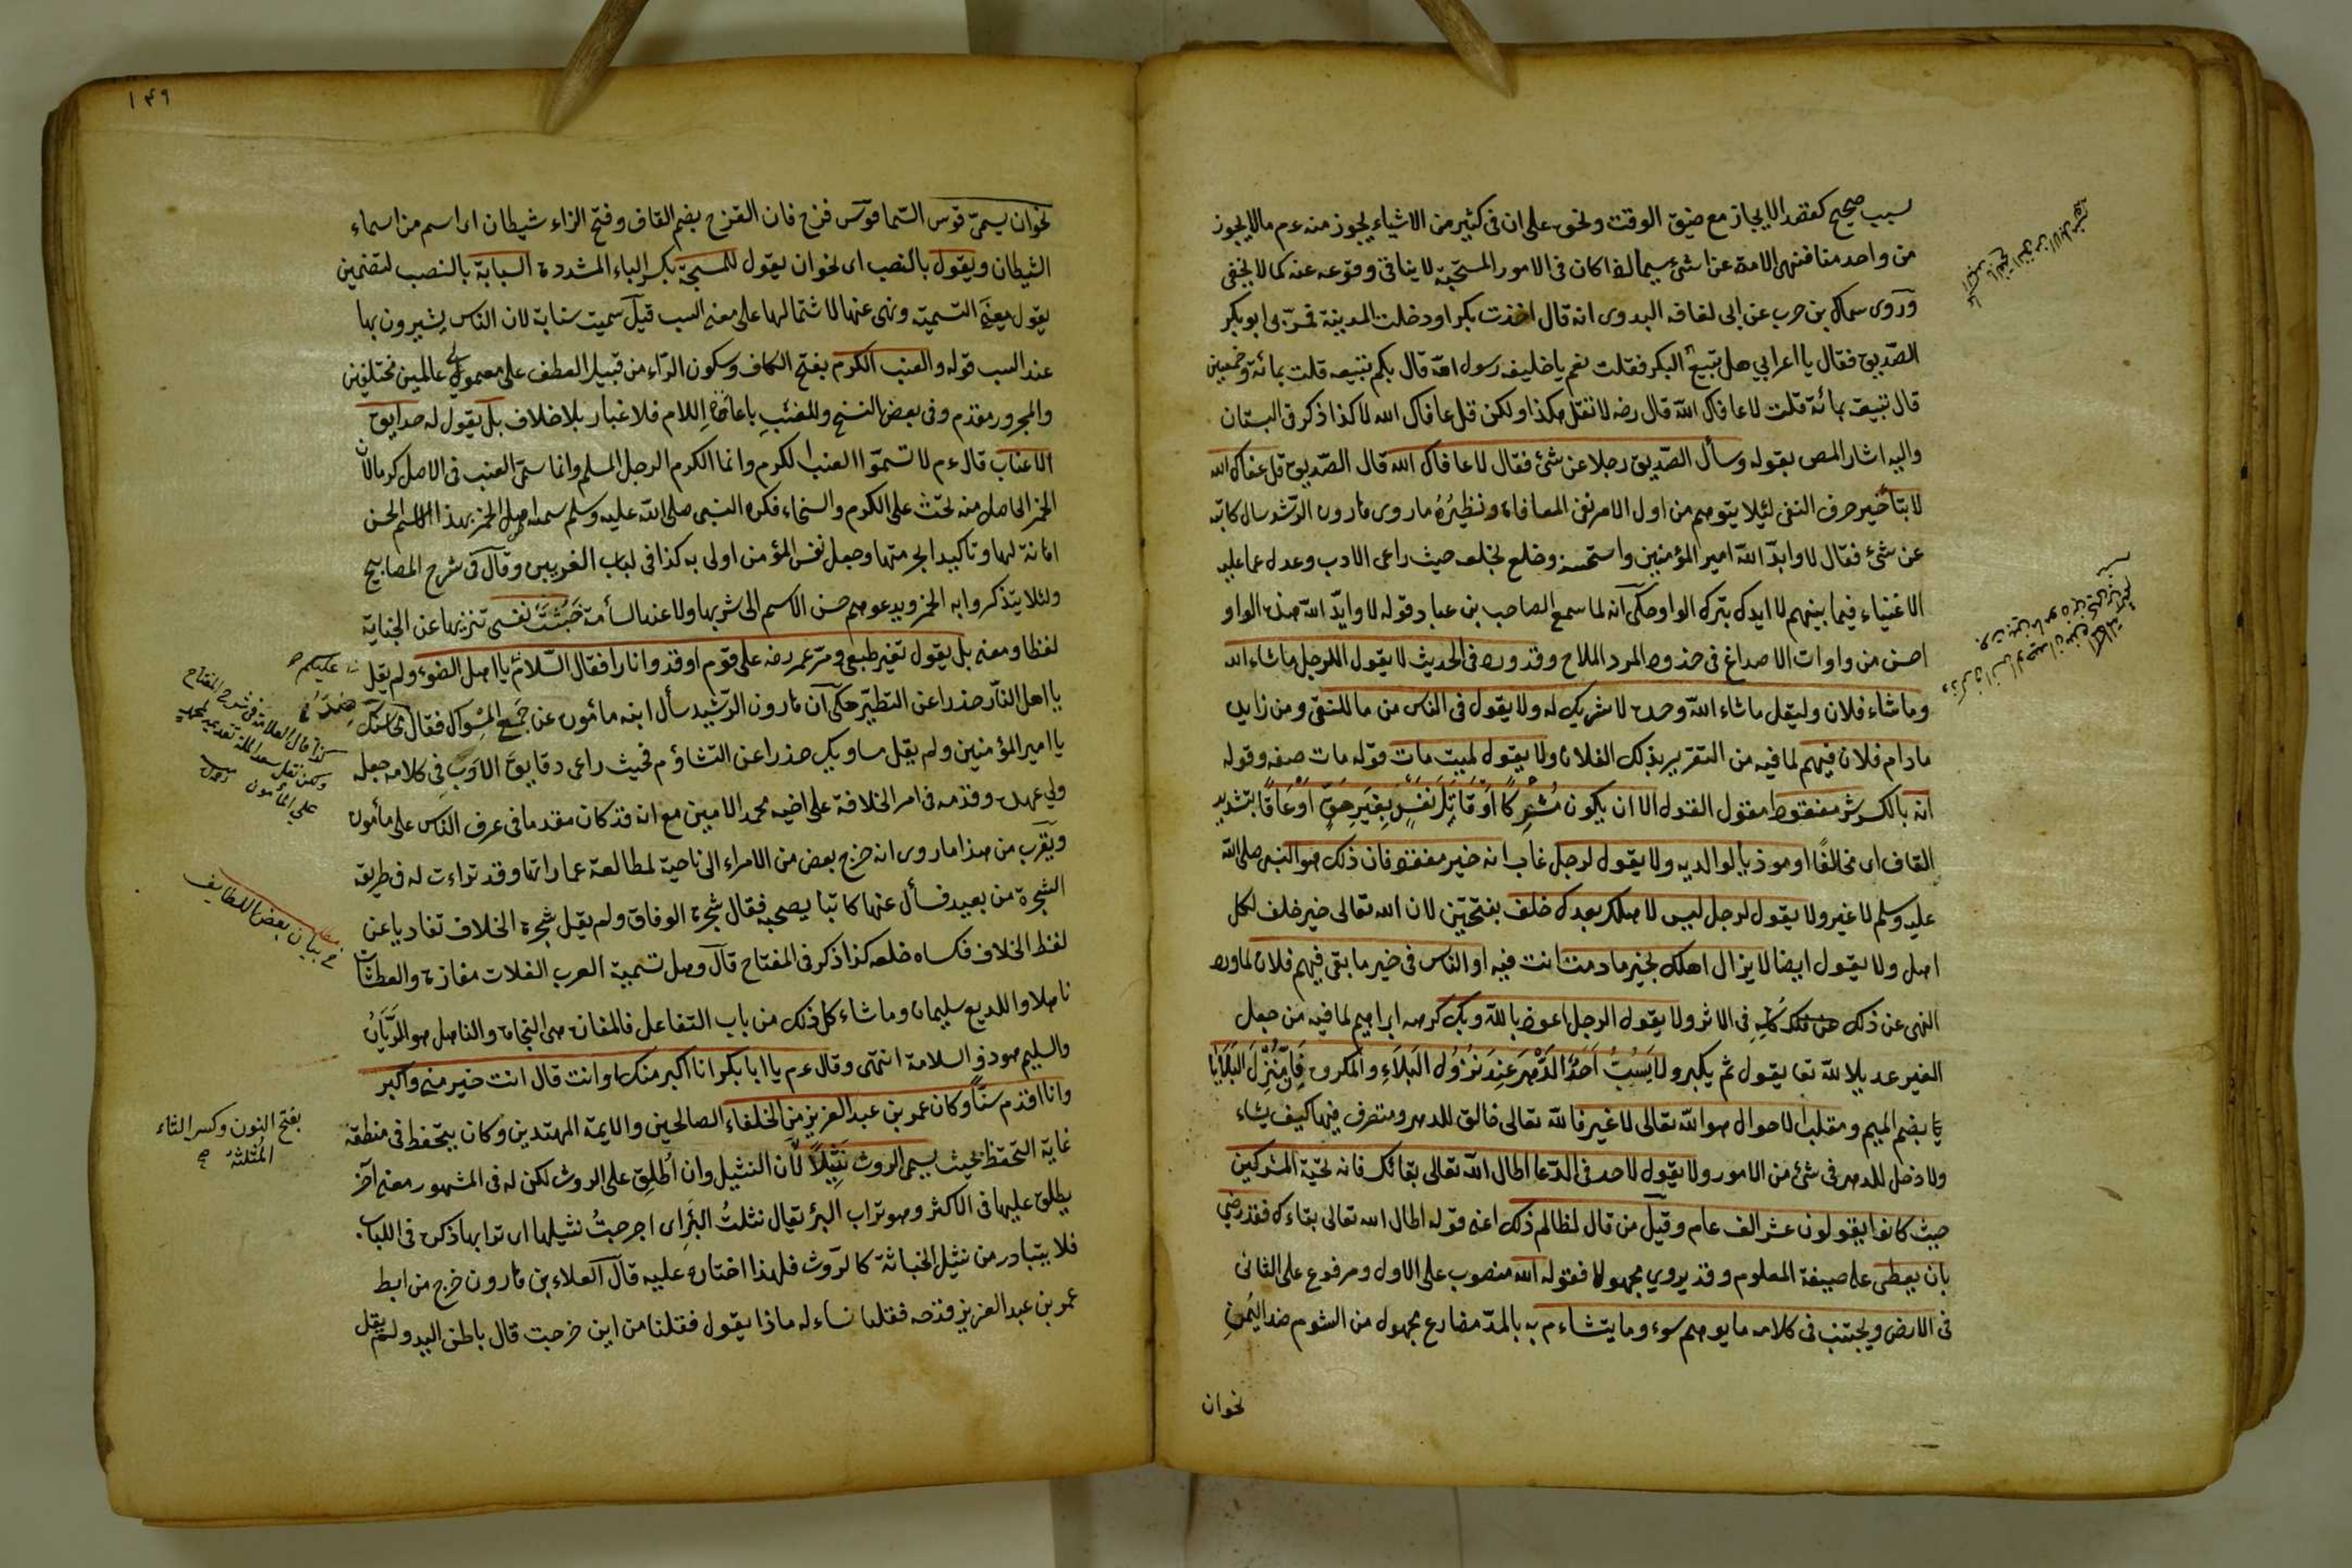 لسبب صحيح كقصد الايجاز مع ضيق الوقت ونحوه على ان فى كثير من الاشياء يجوز منه عم مالا يجوز
من واحد منا فنهى الامة عن شئ سيما اذا كان فى الامور المستحبة لا ينافى وقوعه عنه كما لا يخفى
وروى سماك بن حرب عن ابى لفافه البدوى انه قال اخذت بكرا ودخلت المدينة فمر بى ابو بكر
الصديق فقال يا اعرابي هل تبيع البكر فقلت نعم يا خليفه رسول الله قال بكم تبيعه قلت بمائة وخمسين
قال تبيعه بمائة قلت لا عافاك الله قال رضه لا تقل هكذا ولكن قل عافاك الله لا كذا ذكر فى البستان
واليه اشار المص بقوله وسأل الصديق رجلا عن شئ فقال لا عافاك الله قال الصديق قل عفاك الله
لا بتأخير حرف النفى لئلا يتوهم من اول الامر نفى المعافاة ونظيره ما روى هارون الرشيد سال كاتبه
عن شئ فقال لا وايد الله امير المؤمنين واستحسنه وخلع بخلعه حيث راعى الادب وعدل عما عليه
الاغنياء فيما بينهم لا ايدك بترك الواو وحكى انه لما سمع الصاحب بن عباد قوله لا وايد الله هذه الواو
احسن من واوات الاصداغ فى خدود المرد الملاح وقد ورد فى الحديث لا يقول الرجل ما شاء الله
وما شاء فلان وليقل ما شاء الله وحده لا شريك له ولا يقول فى الناس من ما للنفى ومن زايده
مادام فلان فيهم لما فيه من التقرير بذلك الفلان ولا يقول لميت مات قوله مات صفه وقوله
انه بالكسر مفعول القول الا ان يكون مشركا او قاتل نفس بغير حق او عاقا بتشديد
القاف اى مخالفا او موذيا لوالديه ولا يقول لرجل غاب انه خير مفقود فان ذلك هو النبى صلى الله
عليه وسلم لا غير ولا يقول لرجل ليس لاهلك بعدك خلف بفتحتين لان الله تعالى خير خلف لكل
اهل ولا يقول ايضا لا يزال اهلك بخير مادمت انت فيه او الناس فى خير ما بقى فيهم فلان لما ورد
النهى عن ذلك فى الاثر ولا يقول الرجل اعوذ بالله وبك كرهه ابراهيم لما فيه من جعل
الغير عديلا لله تعا يقول ثم بك ولا يسب احد الدهر عند نزول البلاء والمكروه فان منزل البلايا
بضم الميم ومقلب الاحوال هو الله تعالى لا غير فالله تعالى خالق للدهر ومتصرف فيها كيف يشاء
ولا دخل للدهر فى شئ من الامور ولا يقول لاحد فى الدعا اطال الله تعالى بقائك فانه تحية المشركين
حيث كانوا يقولون عش الف عام وقيل من قال لظالم ذلك اعنى قوله اطال الله تعالى بقاءك فقد رضى
بان يعصى على صيغة المعلوم وقد يروي مجهولا فقوله الله منصوب على الاول ومرفوع على الثانى
فى الارض ويجتنب فى كلامه ما يوهم سوء وما يتشاءم به بالمد مضارع مجهول من الشوم ضد اليمن
نحو ان
١٤٩
نحو ان يسمى قوس السما قوس قزح فان القزح بضم القاف وفتح الزاء شيطان اى اسم من اسماء
الشيطان ويقول بالنصب اى نحو ان يقول للمسبحة بكسر الباء المشددة السبابة بالنصب لتضمين
يقول معنى التسمية ونهى عنها لاشتمالها على معنى السب قيل سميت سبابة لان الناس يشيرون بها
عند السب قوله والعنب الكرم بفتح الكاف وسكون الراء من قبيل العطف على معمولى عاملين مختلفين
والمجرور مقدم وفى بعض النسخ وللعنب باعادة اللام فلا غبار بلا خلاف بل يقول له حدايق
الاعناب قال عم لا تسموا العنب الكرم وانما الكرم الرجل المسلم وانما سمى العنب فى الاصل كرما لان
الخمر الحاصل منه تحث على الكرم والسخاء فكره النبى صلى الله عليه وسلم تسميه اصل الخمر بهذا الاسم الحسن
اهانة لها وتاكيدا لحرمتها وجعل نفس المؤمن اولى به كذا فى لباب الغريبين وقال فى شرح المصابيح
ولئلا يتذكروا به الخمر ويدعوهم حسن الاسم الى شربها ولا عند السأمة خبثت نفسى تنزيها عن الخباثة
لفظا ومعنى بل يقول تغير طبعى ومر عمر رضه على قوم اوقدوا نارا فقال السلام يا اهل الضوء ولم يقل
يا اهل النار حذرا عن التطير حكى ان هارون الرشيد سأل ابنه مأمون عن جمع المسواك فقال ضد محاسنك
يا امير المؤمنين ولم يقل مساويك حذرا عن التشاؤم فحيث راعى دقايق الادب فى كلامه جعله
ولي عهده وقدمه فى امر الخلافة على اخيه محمد الامين مع انه قد كان مقدما فى عرف الناس على مأمون
ويقرب من هذا ما روى انه خرج بعض من الامراء الى ناحية لمطالعة عماراتها وقد تراءت له فى طريقه
الشجرة من بعيد فسأل عنها كاتبا يصحبه فقال شجرة الوفاق ولم يقل شجرة الخلاف تفاديا عن
لفظ الخلاف فكساه خلعه كذا ذكر فى المفتاح قال وهل تسمية العرب الفلات مفازة والعطشان
ناهلا واللديغ سليمان وما شاء كل ذلك من باب التفاعل فالمفازه هى النجاة والناهل هو الريان
والسليم هو ذو السلامة انتهى وقال عم يا ابا بكر انا اكبر منك او انت قال انت خير منى واكبر
وانا اقدم سنا وكان عمر بن عبد العزيز من الخلفاء الصالحين والايمة المهتدين وكان يتحفظ فى منطقه
غاية التحفظ بحيث يسمى الروث نثيلا لان النثيل وان اطلق على الروث لكن له فى المشهور معنى آخر
يطلق عليها فى الاكثر وهو تراب البئر يقال نثلت البئر اى اخرجت نثيلها اى ترابها ذكره فى اللباب
فلا يتبادر من نثيل الخباثة كالروث فلهذا اختاره عليه قال العلاء بن هارون خرج من ابط
عمر بن عبد العزيز قرحه فقلنا نساءله ماذا يقول فقلنا من اين خرجت قال باطن اليد ولم يقل
عليكم
كذا قال العلامة فى شرح المفتاح
ولكن نقل سعد الملة تقديم محمد
على المأمون
بيان بعض اللطايف
بفتح النون وكسر الثاء
المثلثة